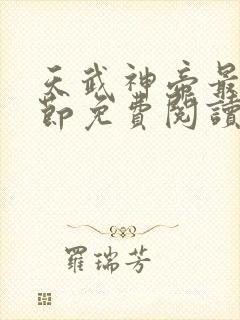 天武神帝最
節免費閱讀
羅瑞芳